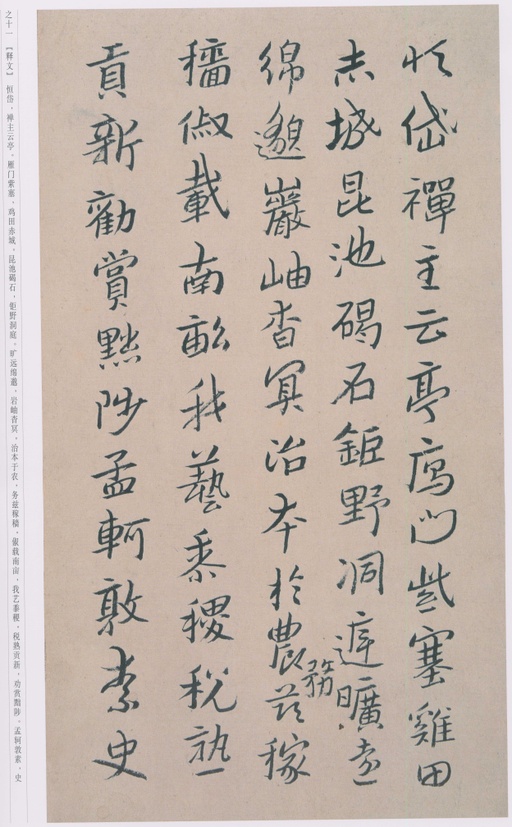 恒岱禪主云亭雁门紫塞雞田
赤城昆池碣石鉅野洞庭曠遠
綿邈巖岫杳冥治本於農務茲稼
穡俶載南畝我藝黍稷稅熟
貢新勸賞黜陟孟軻敦素史
之十一 【释文】 恒岱，禅主云亭。雁门紫塞，鸡田赤城。昆池碣石，钜野洞庭。旷远绵邈，岩岫杳冥。治本于农，务兹稼穑。俶载南亩，我艺黍稷。税熟贡新，劝赏黜陟。孟轲敦素，史